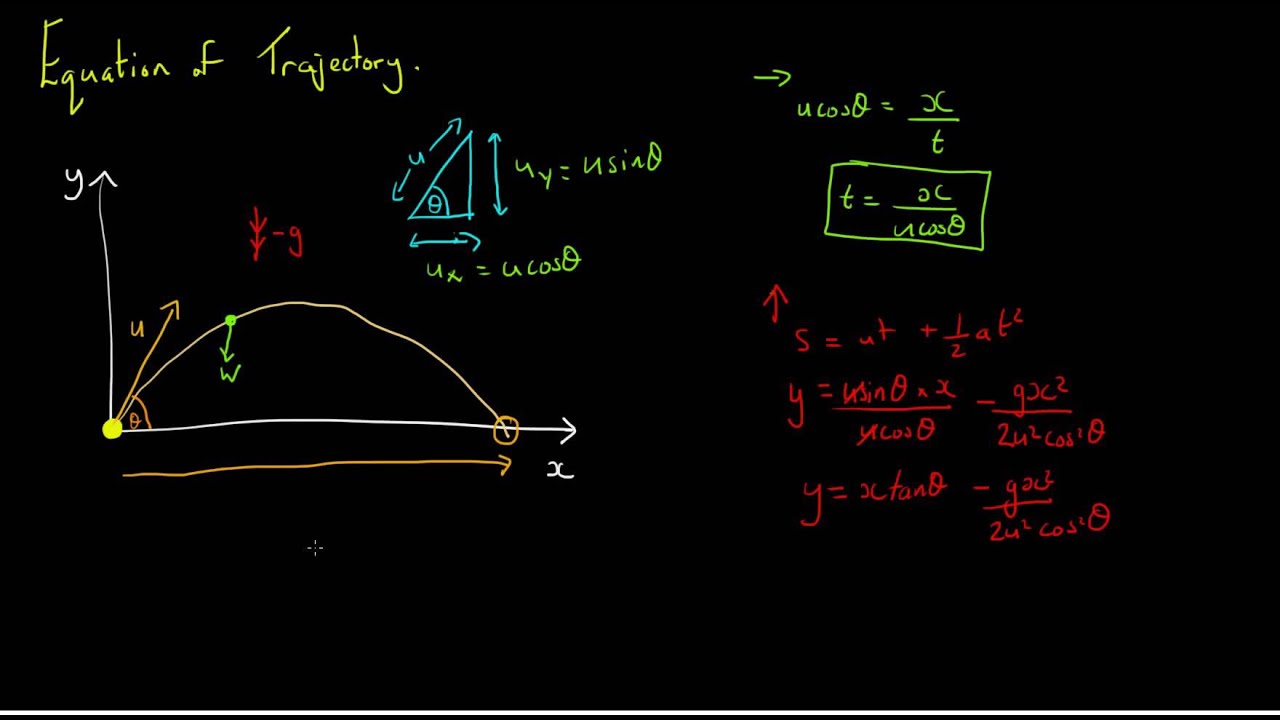 Equation of Trajectory.
y
-g
u
θ
W
x
u
θ
u_y = u sinθ
u_x = u cosθ
→
u cosθ = x/t
t = x/(u cosθ)
↑
s = ut + 1/2 at²
y = (u sinθ × x)/(u cosθ) - gx²/(2u² cos²θ)
y = x tanθ - gx²/(2u² cos²θ)